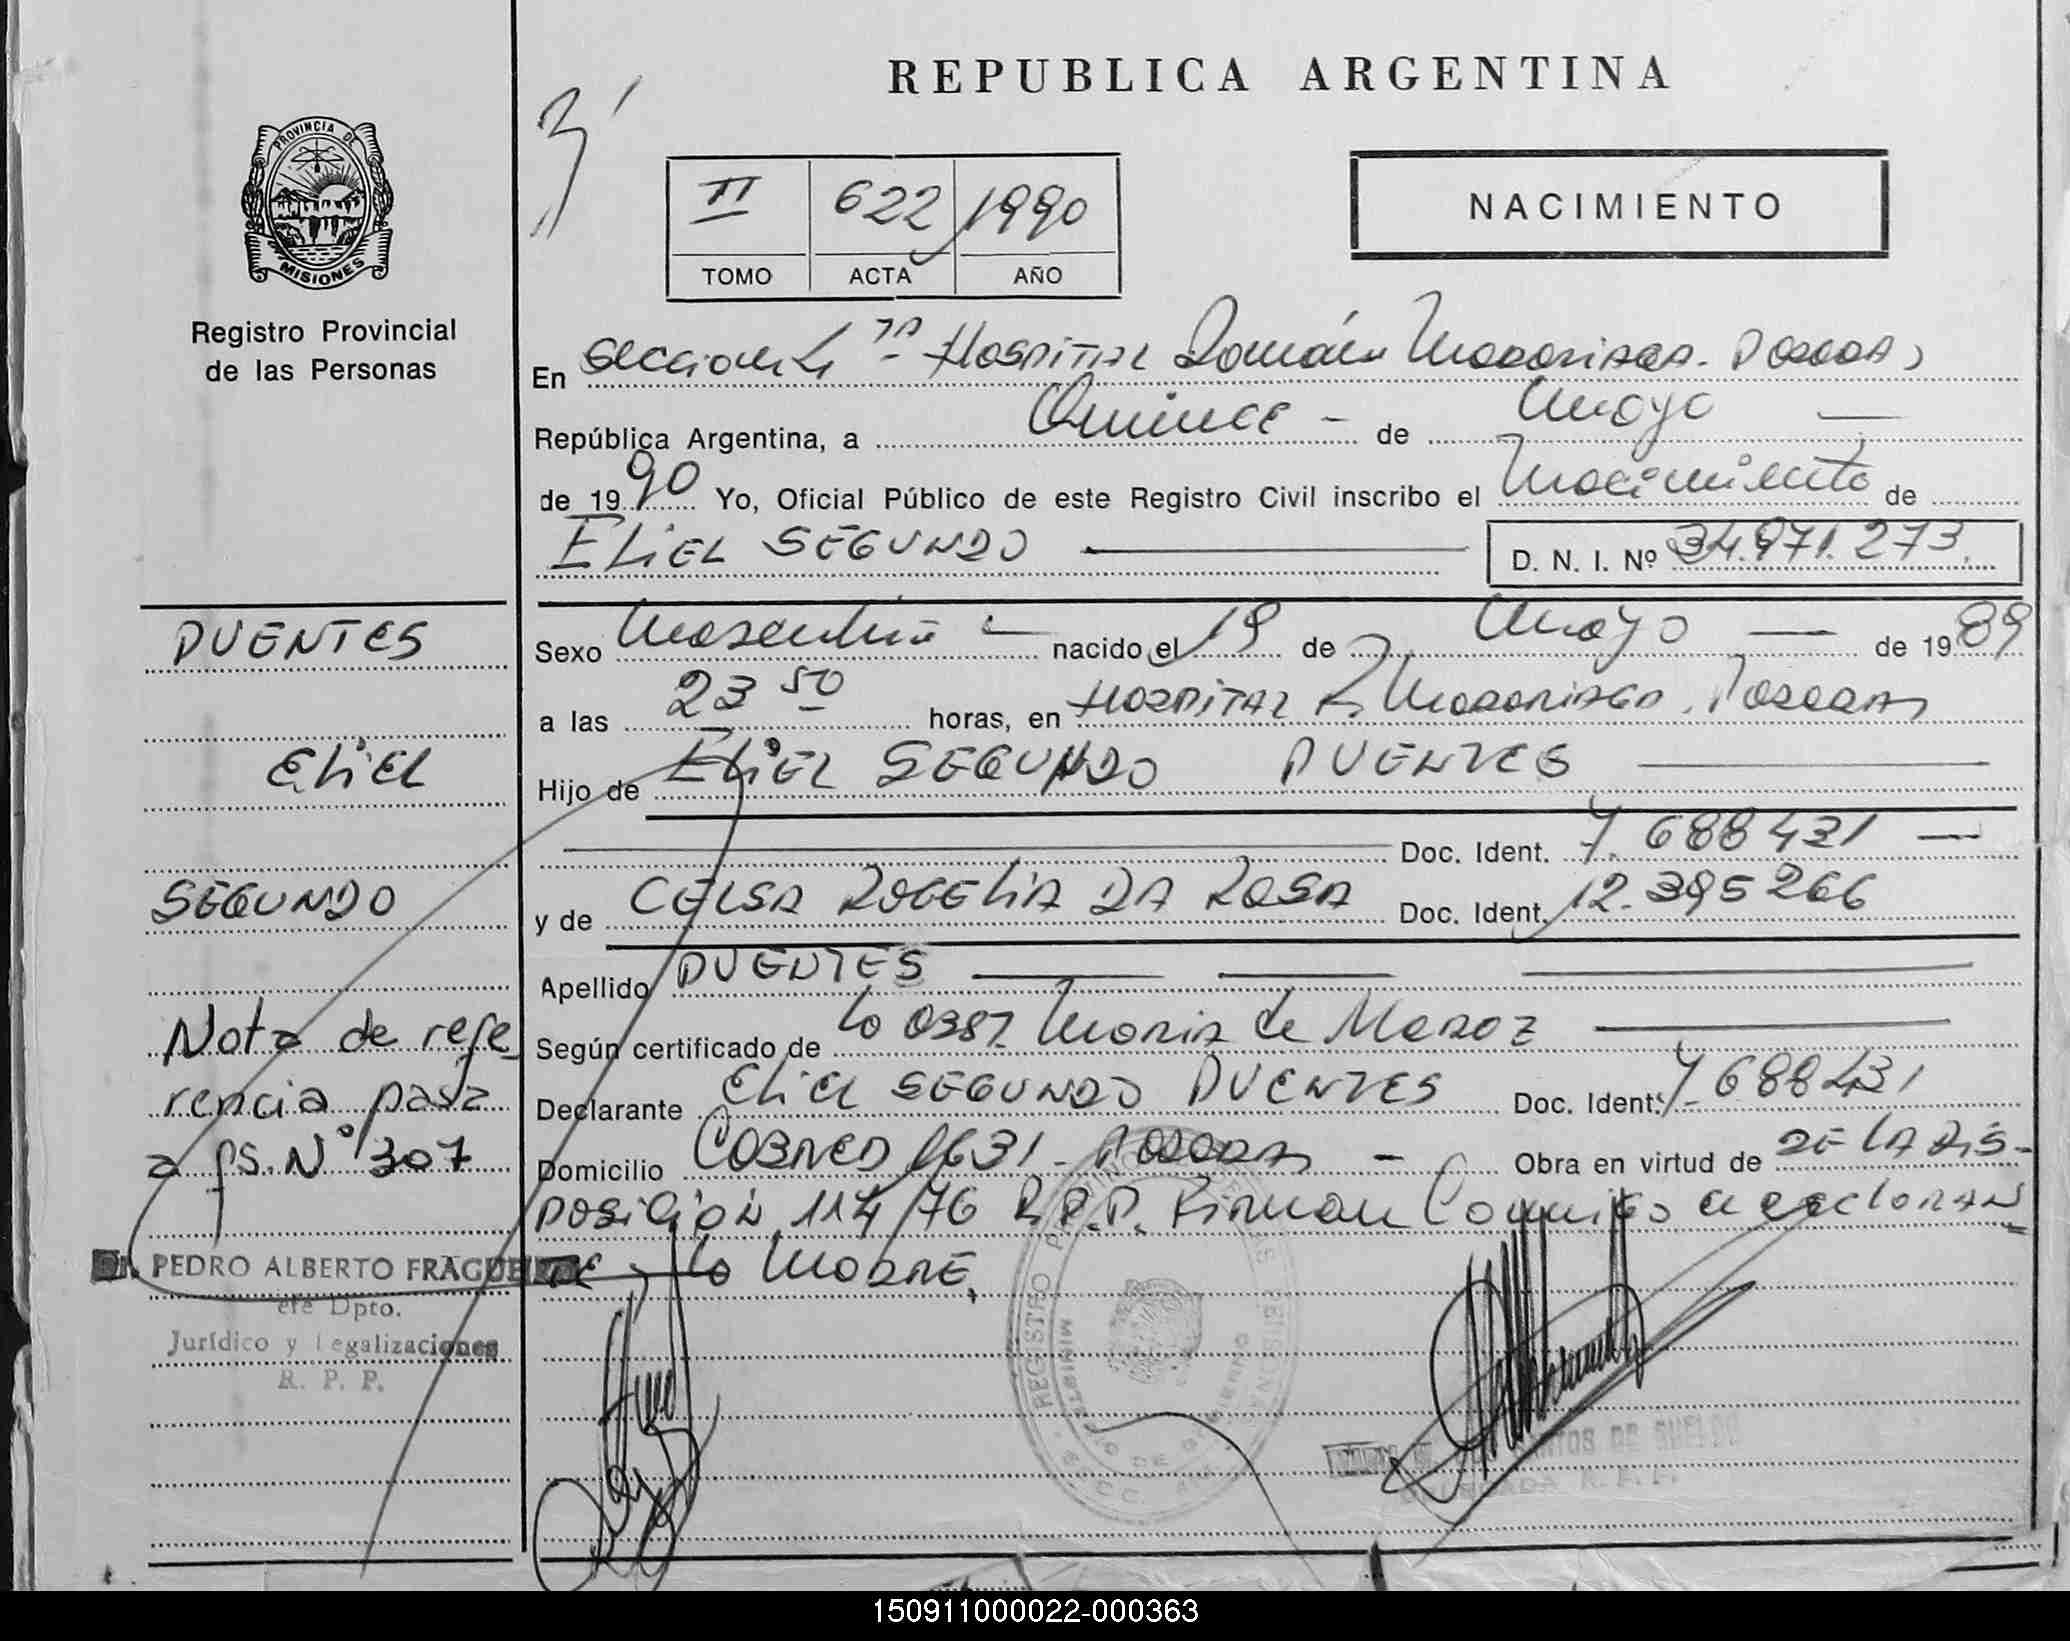 REPUBLICA ARGENTINA
PROVINCIA DE
MISIONES
Registro Provincial
de las Personas
II 622 1990
TOMO ACTA AÑO
NACIMIENTO
En Seccion 4ta Hospital Ramón Madariaga. Posadas,
República Argentina, a Quince - de Mayo —
de 1990 Yo, Oficial Público de este Registro Civil inscribo el Nacimiento de
ELiEL SEGUNDO — D. N. I. Nº 34.971.273.
PUENTES
ELiEL
SEGUNDO
Nota de refe
rencia pasa
a fs. Nº 307
PEDRO ALBERTO FRAGUEIRO
Jefe Dpto.
Jurídico y Legalizaciones
R. P. P.
Sexo Masculino — nacido el 19 de Mayo — de 1989
a las 23 50 horas, en HOSPITAL R. Madariaga. Posadas
Hijo de ELiEL SEGUNDO PUENTES —
— Doc. Ident. 7.688431 —
y de CELSA ROGELiA DA ROSA Doc. Ident. 12.395266
Apellido PUENTES — — —
Según certificado de la María de —
Declarante ELiEL SEGUNDO PUENTES Doc. Ident. 7.688431
Domicilio 1631 - Posadas - Obra en virtud de DE LA DiS-
POSiCiÓN 114/76 R.P.P. Firman Conmigo el declaran
TE y la MADRE,
REGISTRO PROVINCIAL DE LAS PERSONAS
MINISTERIO DE GOBIERNO
150911000022-000363